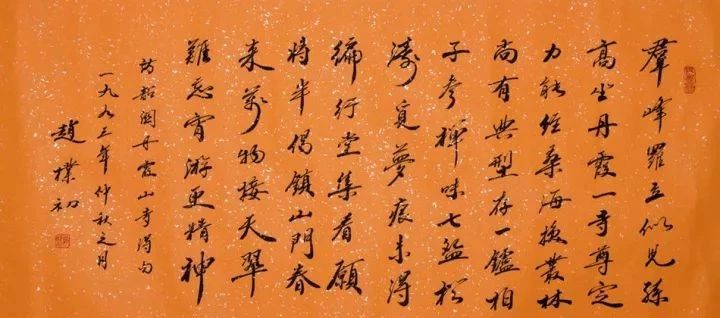 羣峰羅立似兒孫
高坐丹霞一寺尊定
力能經桑海換叢林
尚有典型存一鑪柏
子參禪味七盌松
濤覓夢痕未得
徧行堂集看願
將半偈鎮山門春
来萬物接天翠
難忘宵游更精神
訪韶關丹霞山寺得句
一九九三年仲秋之月
趙樸初